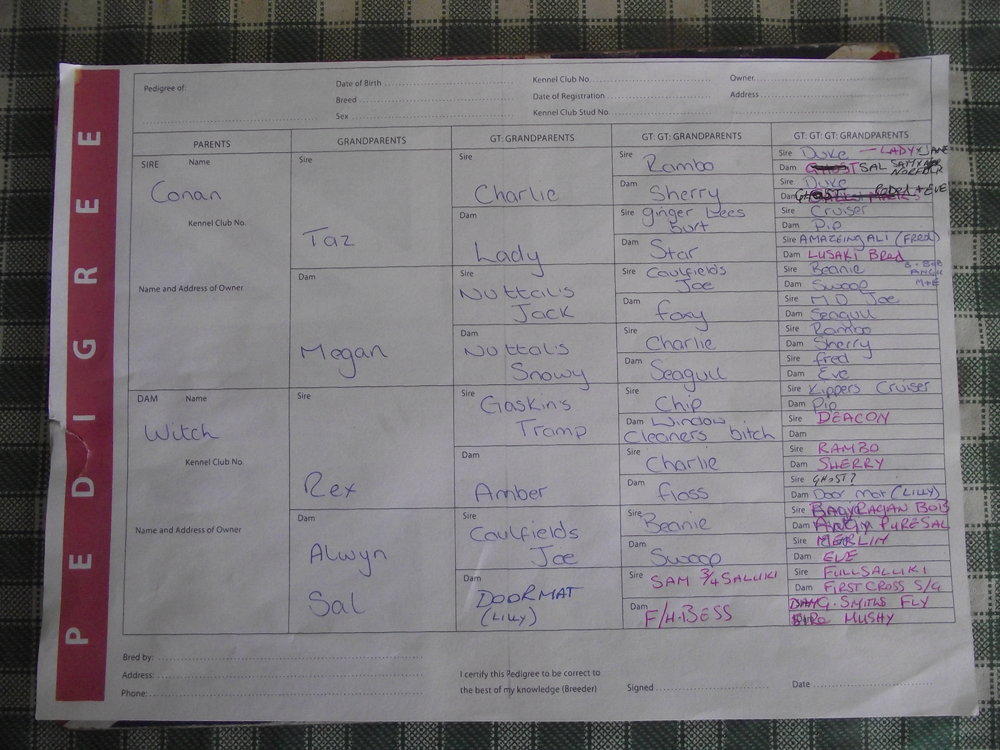 PEDIGREE
Pedigree of:
Date of Birth
Kennel Club No.
Owner.
Breed
Date of Registration
Address
Sex
Kennel Club Stud No.
PARENTS
GRANDPARENTS
GT: GRANDPARENTS
GT: GT: GRANDPARENTS
GT: GT: GT: GRANDPARENTS
SIRE Name
Conan
Kennel Club No.
Name and Address of Owner
DAM Name
Witch
Kennel Club No.
Name and Address of Owner
Sire
Taz
Dam
Megan
Sire
Rex
Dam
Alwyn
Sal
Sire
Charlie
Dam
Lady
Sire
Nuttalls
Jack
Dam
Nuttals
Snowy
Sire
Gaskins
Tramp
Dam
Amber
Sire
Caulfields
Joe
Dam
DOORMAT
(LILLY)
Sire Rambo
Dam Sherry
Sire ginger bees
burt
Dam Star
Sire Caulfields
Joe
Dam foxy
Sire Charlie
Dam Seagull
Sire Chip
Dam Window
Cleaners bitch
Sire Charlie
Dam floss
Sire Beanie
Dam Swoop
Sire SAM 3/4 SALLUKI
Dam F/H.BESS
Sire Duke — LADY x JANE
Dam SAL
NORFOLK
Sire Duke
Dam GHOST + EVE
Sire Cruiser
Dam Pip
Sire AMAZEINGALI (FRED)
Dam LUSAKI Bred
Sire Beanie
Dam Swoop
M+E
Sire M.D Joe
Dam Seagull
Sire Rambo
Dam Sherry
Sire fred
Dam Eve
Sire Kippers Cruiser
Dam Pip
Sire DEACON
Dam
Sire RAMBO
Dam SHERRY
Sire GHOST?
Dam Door mat (LILLY)
Sire RAGAN BOB
Dam PURESAL
Sire MERLIN
Dam EVE
Sire FULLSALLUKI
Dam FIRST CROSS S/G
DAM G.SMITHS FLY
SIRE MUSHY
Bred by:
Address:
Phone:
I certify this Pedigree to be correct to
the best of my knowledge (Breeder)
Signed
Date